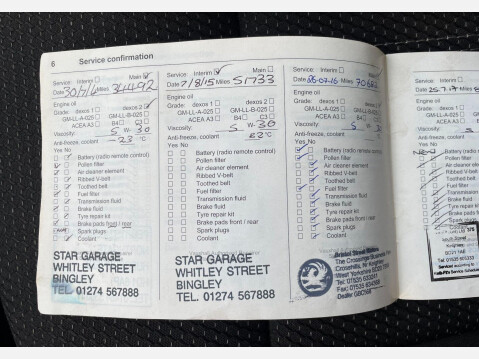 6 Service confirmation
Service: Interim Main
Date Miles 34492
Engine oil
Grade: dexos 1 dexos 2
GM-LL-A-025 GM-LL-B-025
ACEA A3 B4 C3
Viscosity: 5 W- 30
Anti-freeze, coolant
-23 °C
Yes No
Battery (radio remote control)
Pollen filter
Air cleaner element
Ribbed V-belt
Toothed belt
Fuel filter
Transmission fluid
Brake fluid
Tyre repair kit
Brake pads front / rear
Spark plugs
Coolant
STAR GARAGE
WHITLEY STREET
BINGLEY
TEL. 01274 567888
Service: Interim Main
Date 7/8/15 Miles 51733
Engine oil
Grade: dexos 1 dexos 2
GM-LL-A-025 GM-LL-B-025
ACEA A3 B4 C3
Viscosity: 5 W- 30
Anti-freeze, coolant
°C
Yes No
Battery (radio remote control)
Pollen filter
Air cleaner element
Ribbed V-belt
Toothed belt
Fuel filter
Transmission fluid
Brake fluid
Tyre repair kit
Brake pads front / rear
Spark plugs
Coolant
STAR GARAGE
WHITLEY STREET
BINGLEY
TEL. 01274 567888
Service: Interim Main
Date Miles
Engine oil
Grade: dexos 1 dexos 2
GM-LL-A-025 GM-LL-B-025
ACEA A3 B4 C3
Viscosity: 5 W- 30
Anti-freeze, coolant °C
Yes No
Battery (radio remote control)
Pollen filter
Air cleaner element
Ribbed V-belt
Toothed belt
Fuel filter
Transmission fluid
Brake fluid
Tyre repair kit
Brake pads front / rear
Spark plugs
Coolant
Bristol Street Motors
The Crossings Business
Crosshills, Nr Keighley
West Yorkshire
Service:
Date 25.7.17
Engine oil
Grade:
Viscosity:
Anti-freeze, coolant